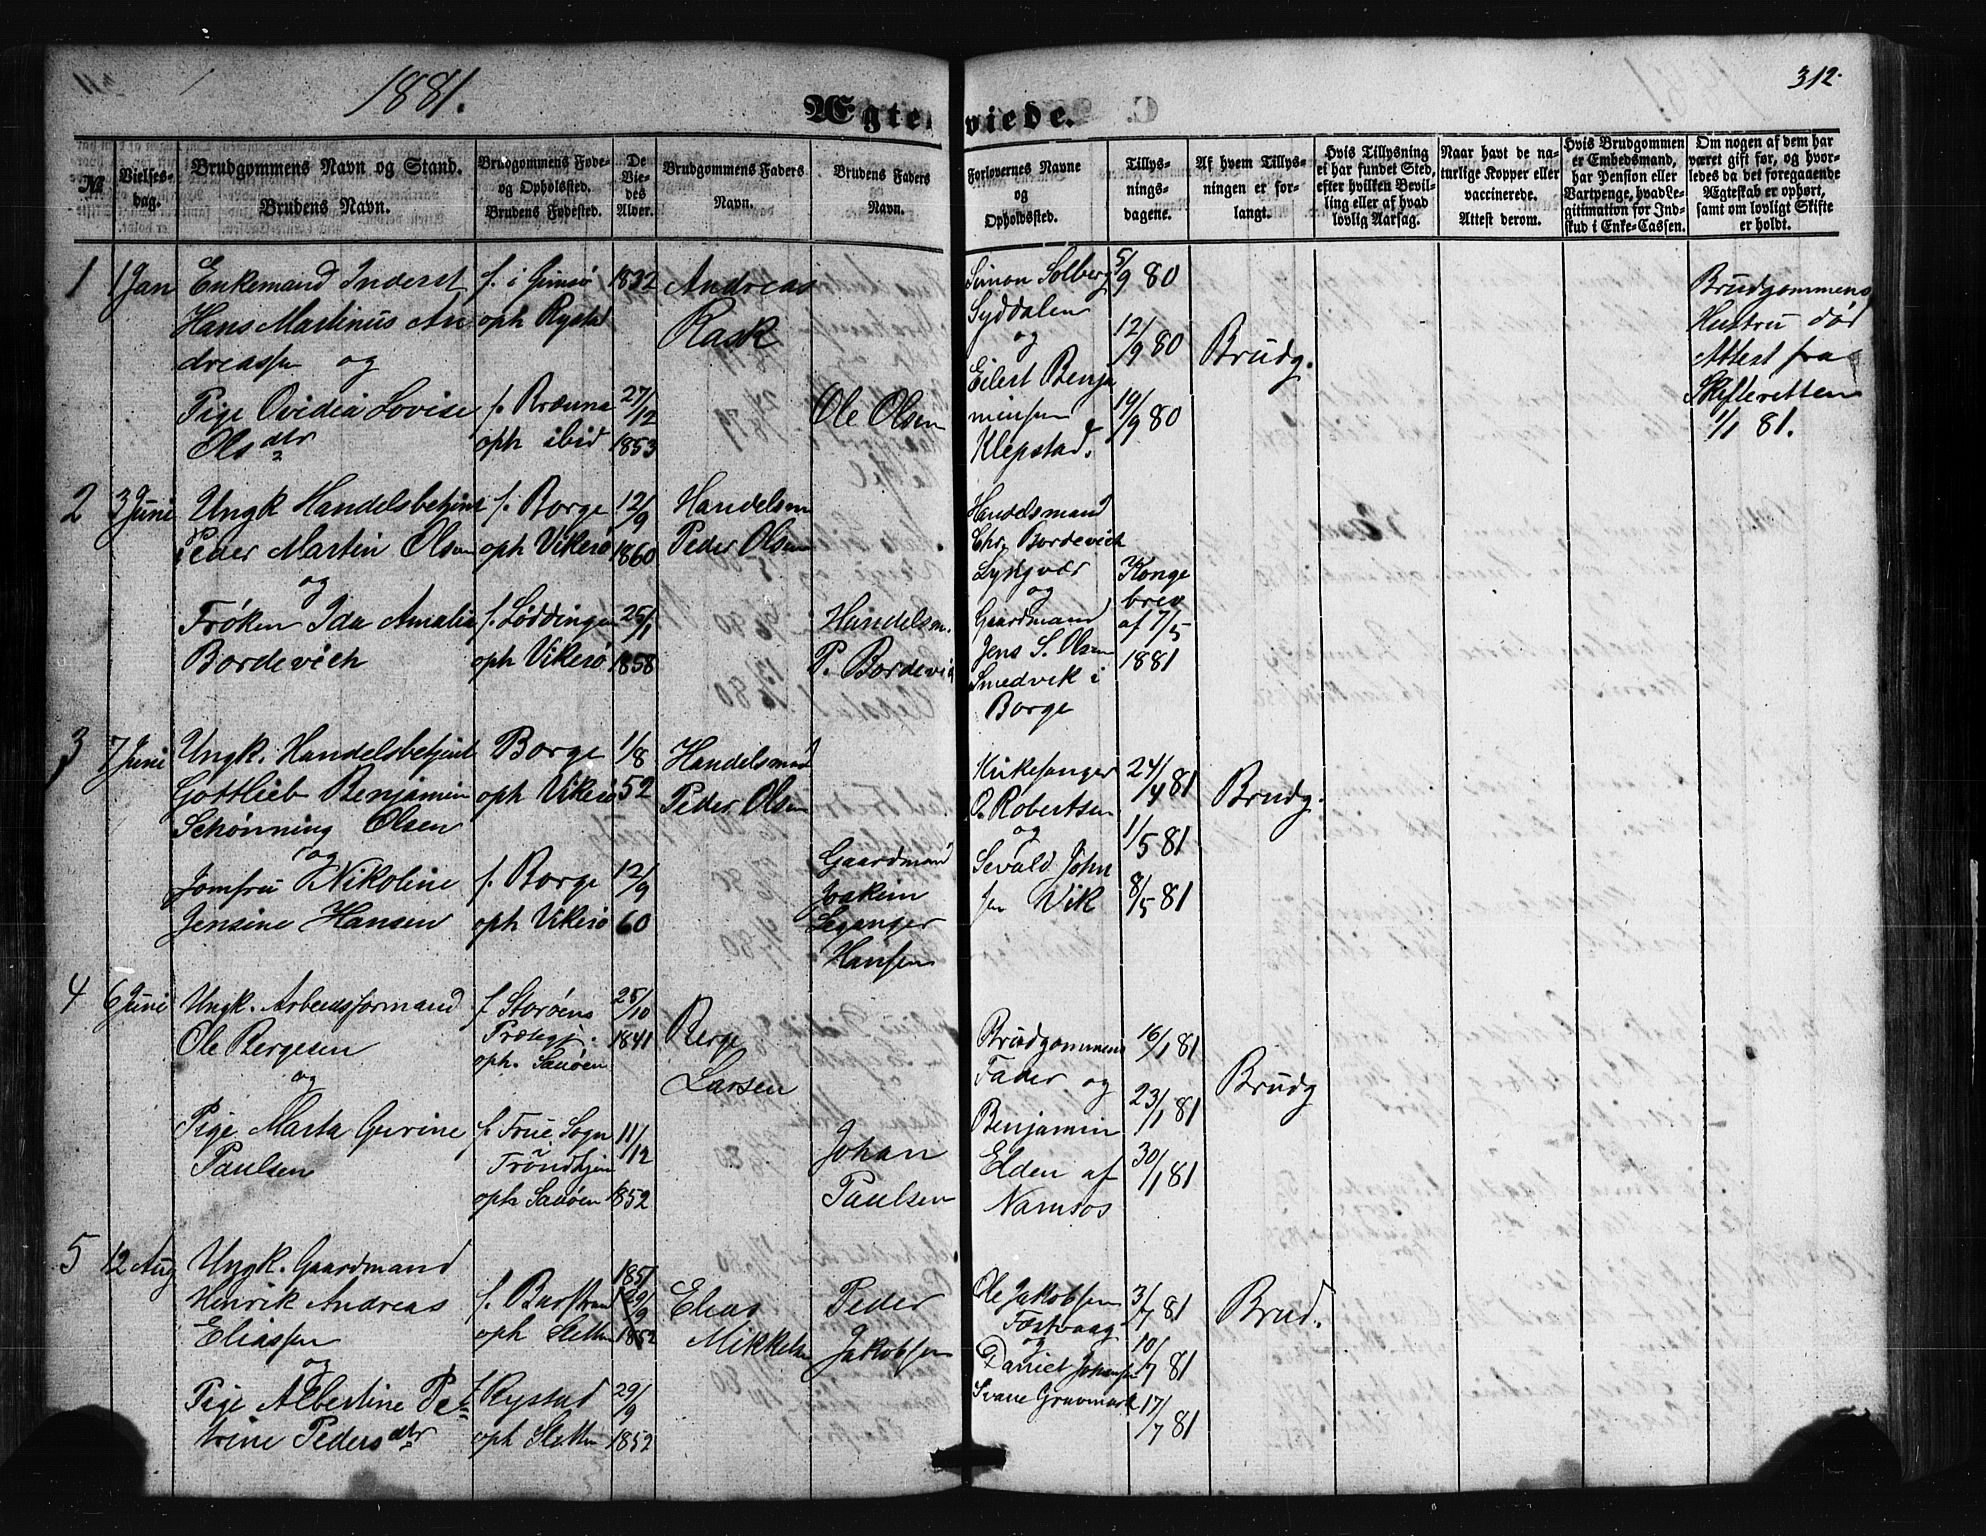 1881.
Ægteviede.
312.
No.
Vielses-dag.
Brudgommens Navn og Stand.
Brudens Navn.
Brudgommens Føde- og Opholdssted.
Brudens Fødested.
De Vie-des Alder.
Brudgommens Faders Navn.
Brudens Faders Navn.
Forlovernes Navne og Opholdssted.
Tillys-nings-dagene.
Af hvem Tillys-ningen er for-langt.
Hvis Tillysning ei har fundet Sted, efter hvilken Bevil-ling eller af hvad lovlig Aarsag.
Naar havt de na-turlige Kopper eller vaccinerede. Attest derom.
Hvis Brudgommen er Embedsmand, har Pension eller Vartpenge, hvad Le-gitimation for Ind-skud i Enke-Cassen.
Om nogen af dem har været gift før, og hvor-ledes da det foregaaende Ægteskab er ophørt, samt om lovligt Skifte er holdt.
1
1 Jan
Enkemand Inderst
Hans Martinus An
dreassen og
Pige Ovidia Lovise
Olsdtr
f. i Gimsø
oph Rystad
f. Brænna
oph ibid
1832
27/12
1853
Andreas
Rask
Ole Olsen
Simon Solberg
Syddalen
og
Eilert Benja
minsen
Klepstad.
5/9 80
12/9 80
19/9 80
Brudg.
Brudgommens
Hustru død
Attest fra
Skifteretten
1/1 81.
2
3 Juni
Ungk Handelsbetjent
Peder Martin Olsen
og
Frøken Ida Amalia
Bordevich
f. Borge
oph Vikerø
f. Løddingen
oph Vikerø
12/9
1860
25/1
1858
Handelsm
Peder Olsen
Handelsm.
P. Bordevic
Handelsmand
Chr. Bordevich
Lyngvær
og
Gaardmand
Jens S. Olsen
Smedvik i
Borge
Konge
brev
af 7/5
1881
3
7 Juni
Ungk. Handelsbetjent
Gottlieb Benjamin
Schønning Olsen
og
Jomfru Nikoline
Jensine Hansen
Borge
oph Vikerø
f. Borge
oph Vikerø
1/8
52
12/9
60
Handelsmand
Peder Olsen
Gaardmand
Joakim
Leganger
Hansen
Kirkesanger
O. Robertsen
og
Sevald John
sen Vik
24/4 81
1/5 81
8/5 81
Brudg.
4
6 Juni
Ungk. Arbeidsformand
Ole Bergesen
og
Pige Marta Gurine
Paulsen
f Storøens
Præstegj.
oph. Sauøen
f. Frue Sogn
Trondhjem
oph Sauøen
25/10
1841
11/12
1852
Berge
Larsen
Johan
Paulsen
Brudgommens
Fader og
Benjamin
Elden af
Namsos
16/1 81
23/1 81
30/1 81
Brudg
5
12 Aug
Ungk. Gaardmand
Henrik Andreas
Eliassen
og
Pige Albertine Pe=
trine Pedersdtr
oph Sletten
f Rystad
oph Sletten
1851
29/9
1852
29/9
1852
Elias
Mikkelsen
Peder
Jakobsen
Ole Jakobsen
Festvaag
og
Daniel Johansen
Svane Gravmark
3/7 81
10/7 81
17/7 81
Brud.